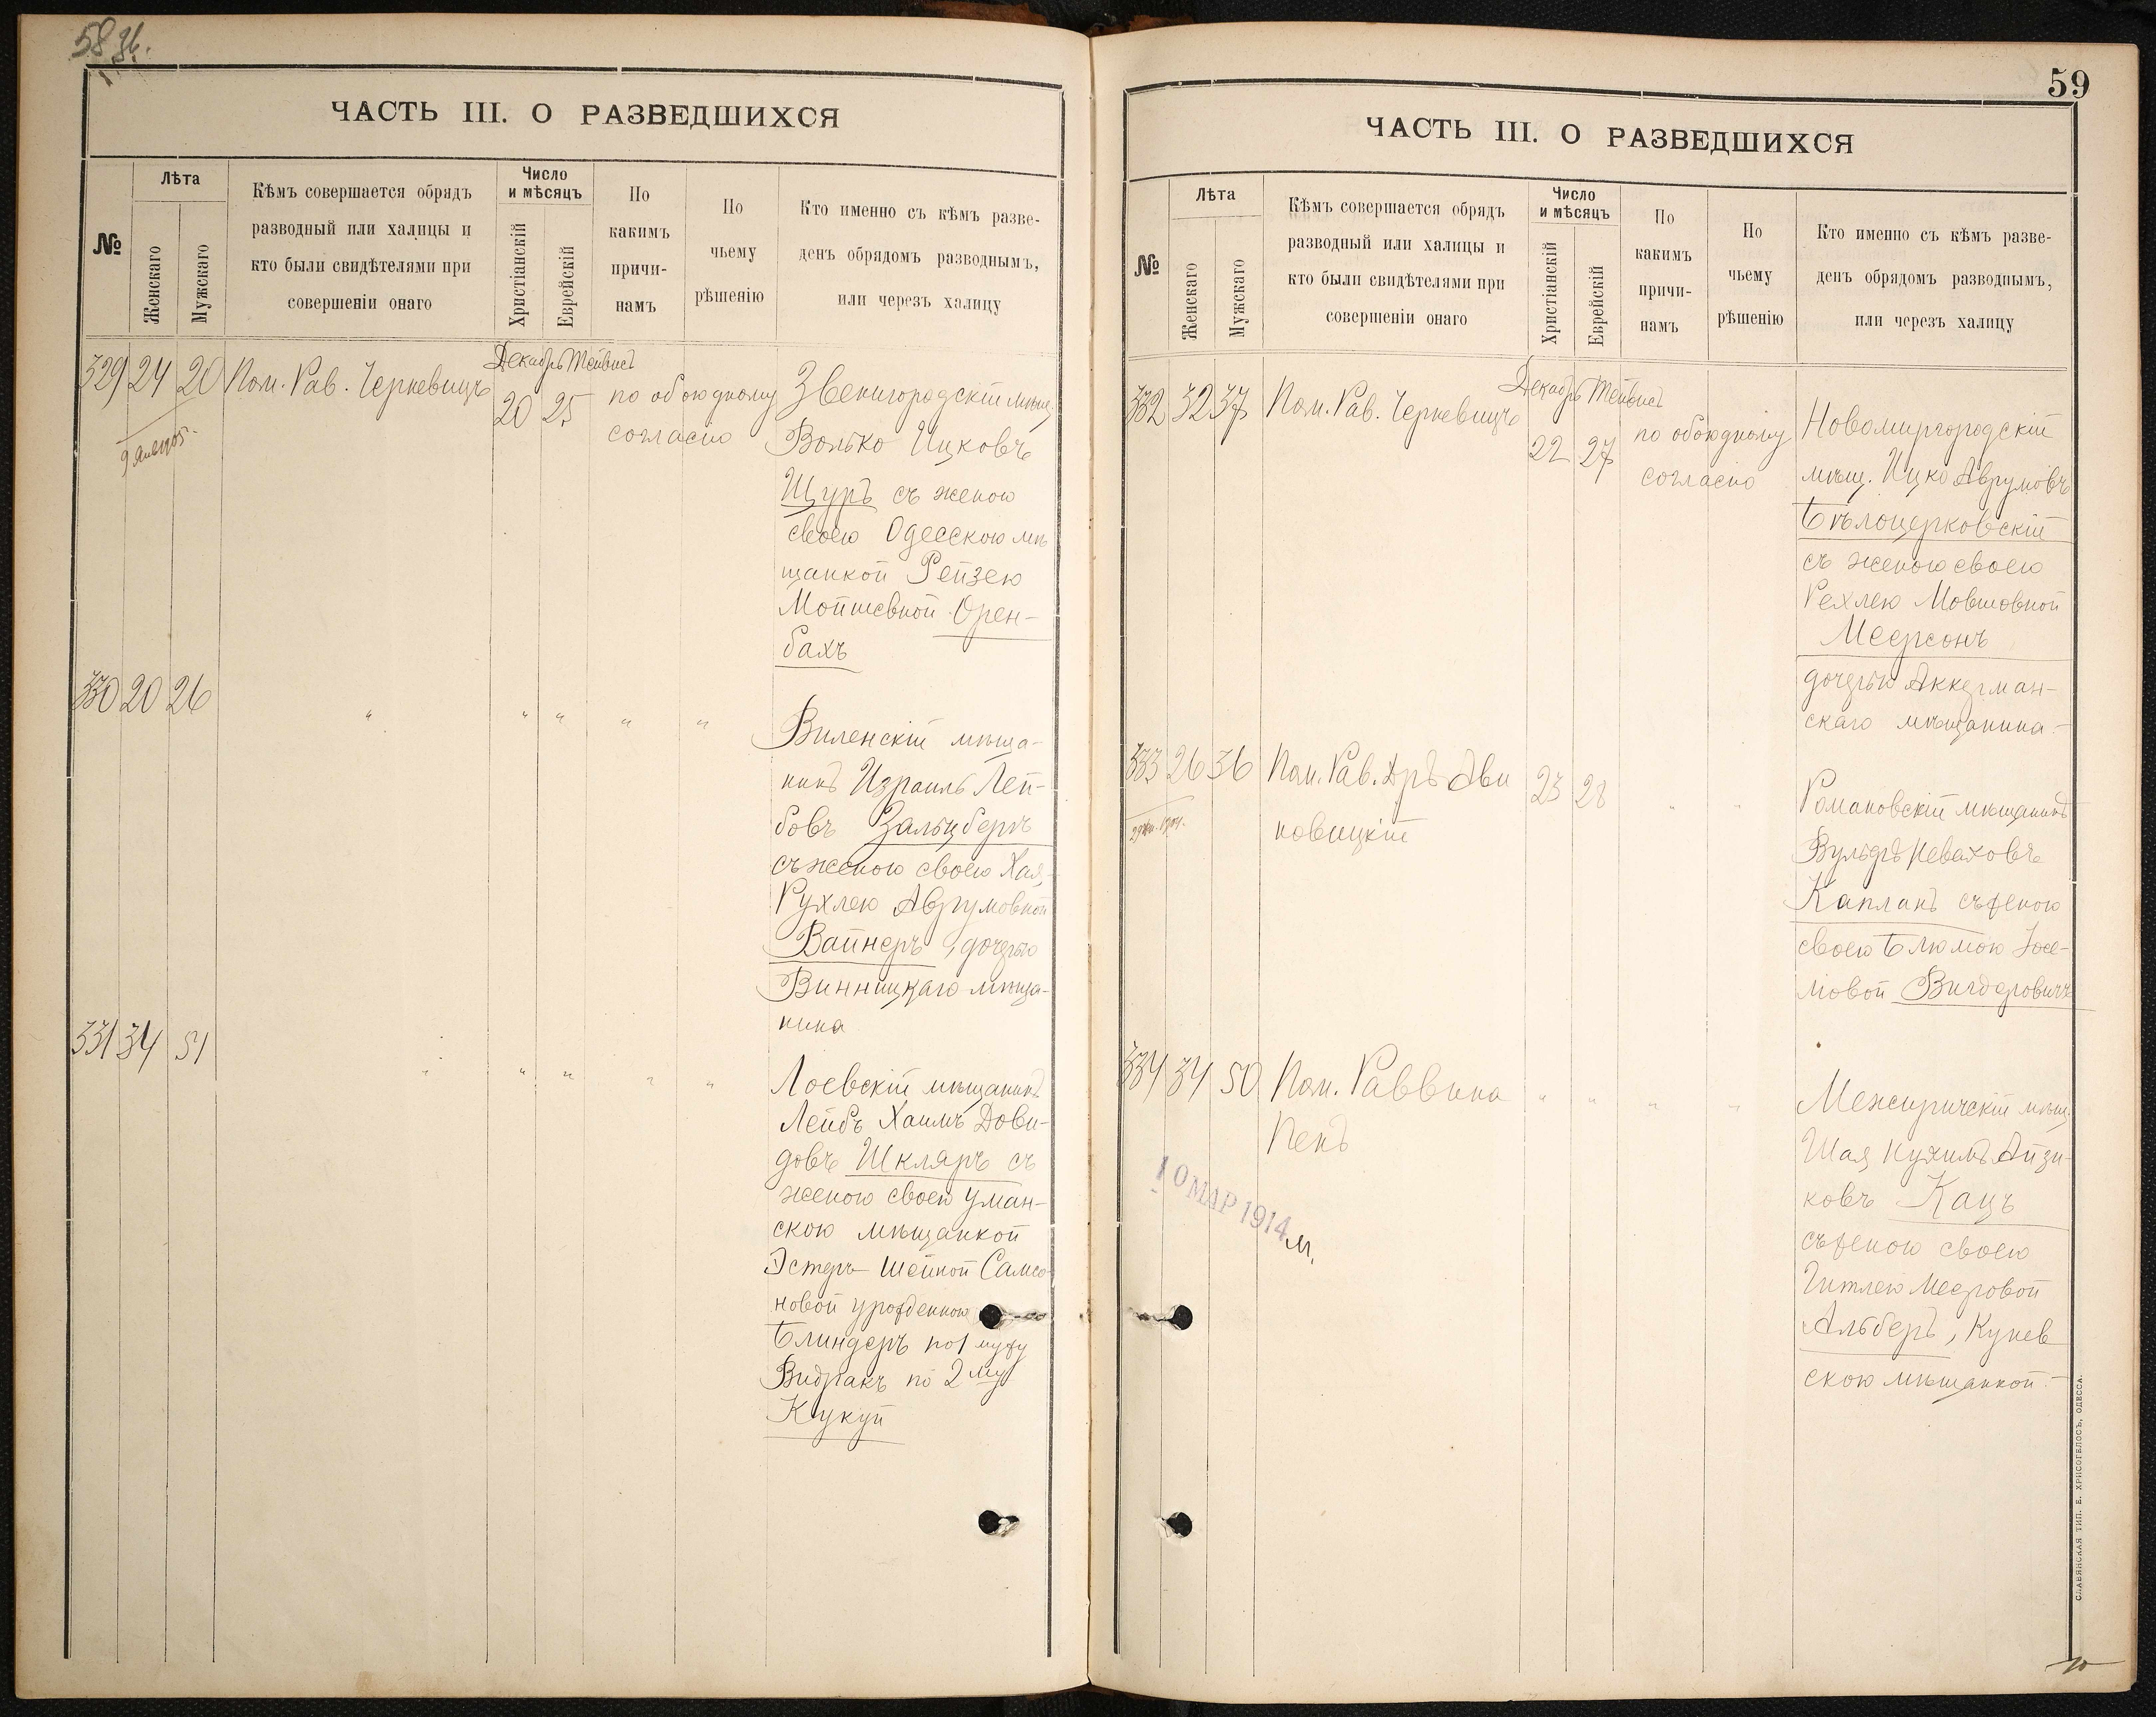 58
ЧАСТЬ III. О РАЗВЕДШИХСЯ
№
Лѣта
Женскаго
Мужскаго
Кѣмъ совершается обрядъ
разводный или халицы и
кто были свидѣтелями при
совершеніи онаго
Число
и мѣсяцъ
Христіанскій
Еврейскій
По
какимъ
причи-
намъ
По
чьему
рѣшенію
Кто именно съ кѣмъ разве-
денъ обрядомъ разводнымъ,
или черезъ халицу
329 24 20 Пом. Рав. Черкевичъ
Декабрь Тейвись
20 25
по обоюдному
согласію
Звенигородскій мѣщ.
Волько Ицковъ
Щуръ съ женою
своею Одесскою мѣ
щанкой Рейзею
Мойшевной Орен-
бахъ
330 20 26 " " " " "
Виленскій мѣща-
нинъ Израиль Лей-
бовъ Зальцбергъ
съ женою своею Хая-
Рухлею Аврумовной
Вайнеръ, дочерью
Винницкаго мѣща-
нина
331 34 51 " " " " "
Лоевскій мѣщанинъ
Лейбъ Хаимъ Дови-
довъ Шкляръ съ
женою своей Уман-
скою мѣщанкой
Эстеръ-Шейной Самсо-
новой урожденною
Блиндеръ по 1 мужу
Видракъ по 2 му
Кукуй
59
ЧАСТЬ III. О РАЗВЕДШИХСЯ
№
Лѣта
Женскаго
Мужскаго
Кѣмъ совершается обрядъ
разводный или халицы и
кто были свидѣтелями при
совершеніи онаго
Число
и мѣсяцъ
Христіанскій
Еврейскій
По
какимъ
причи-
намъ
По
чьему
рѣшенію
Кто именно съ кѣмъ разве-
денъ обрядомъ разводнымъ,
или черезъ халицу
332 32 37 Пом. Рав. Черкевичъ
Декабрь Тейвись
22 27
по обоюдному
согласію
Новомиргородскій
мѣщ. Ицко Аврумовъ
Бѣлоцерковскій
съ женою своею
Рехлею Мовшовной
Меерсонъ
дочерью Аккерман-
скаго мѣщанина-
333 26 36 Пом. Рав. Дръ Ави
новицкій
23 28 " "
Романовскій мѣщанинъ
Вульфъ Неваховъ
Капланъ съ женою
своею Блюмою Іосе-
ловой Вигдоровичъ
334 34 50 Пом. Раввина
Пенъ
" " " "
10 МАР 1914
м.
Межиричскій мѣщ.
Шая Кухимъ Айзи-
ковъ Кацъ
съ женою своею
Гитлею Мееровой
Альберъ, Кунев
скою мѣщанкой.-
СЛАВЯНСКАЯ ТИП. Е. ХРИСОГЕЛОСЪ, ОДЕССА.